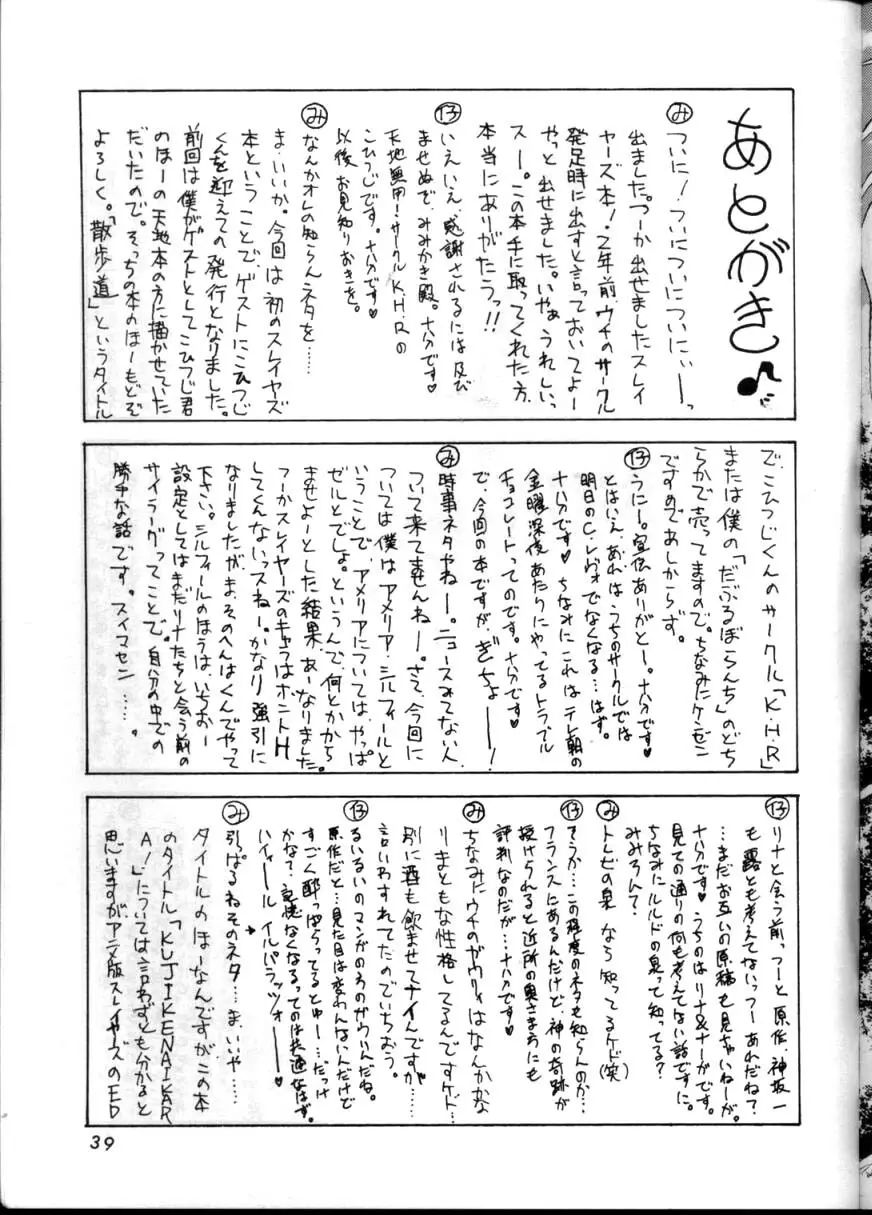 あとがき♪
み ついに!ついについについにぃーっ
出ました。つーか出せましたスレイ
ヤーズ本!2年前、ウチのサークル
発足時に出すと言っておいてよー
やっと出せました。いやぁ、うれしいっ
スー。この本手に取ってくれた方、
本当にありがたうっ!!
いえいえ、感謝されるには及び
ませぬで、みみかき殿。十分です♥
天地無用!サークルK.H.Rの
こひつじです。十分です♥
以後、お見知りおきを。
み なんかオレの知らんネタを……
ま・いいか。今回は初のスレイヤーズ
本ということで、ゲストにこひつじ
くんを迎えての発行となりました。
前回は僕がゲストとしてこひつじ君
のほーの天地本の方に描かせていた
だいたので。そっちの本のほーもどぞ
よろしく。「散歩道」というタイトル
で、こひつじくんのサークル「K.H.R」
または僕の「だぶるぼらんち」のどち
らかで売ってますので。ちなみにケンゼン
ですのであしからず。
うにー。宣伝ありがとー。十分です♥
とはいえ、あれはうちのサークルでは
明日のC.レヴォでなくなる…はず。
十分です♥ ちなみにこれはテレ朝の
金曜深夜あたりにやってるトラブル
チョコレートってのです。十分です♥
で、今回の本ですが、ぎちょーー!
み 時事ネタやねー。ニュースみてない人、
ついて来てませんねー。さて、今回に
ついては僕はアメリア・シルフィールと
いうことで、アメリアについては、やっぱ
ゼルとでしょ。というんで、何とかから
ませよーとした結果、あーなりました。
つーかスレイヤーズのキャラはホントH
してくんないっスねー。かなり強引に
なりましたが、ま、そのへんはくんでやって
下さい。シルフィールのほうは、いちおー
設定としてはまだリナたちと会う前の
サイラーグってことで。自分の中での
勝手な話です。スイマセン……。
リナと会う前っつーと原作、神坂一
も露とも考えてないっつーあれだね?
…まだお互いの原稿も見ちゃいねーが。
十分です♥ うちのはリナ&ナーガです。
見ての通りの何も考えてない話ですに。
ちなみにルルドの泉って知ってる?
みみろんて?
み トレビの泉なら知ってるケド(笑)
そうか…この程度のネタも知らんのか…
フランスにあるんだけど、神の奇跡が
授けられると近所の奥さまにも
評判なのだが…十分です♥
み ちなみにウチのガウリィはなんかかな
りまともな性格してるんですケド…
別に酒も飲ませてナイんですが……
言いわすれてたのでいちおう。
るいるいのマンガのあのガウリィんだね。
原作だと…見た目は変わんないんだけで
すごく酔っぱらってるとゆー…だっけ
かな?記憶なくなるってのは共通なはず。
ハイィール イルパラッツォーー♥
み 引っぱるねそのネタ…ま、いいや……
タイトルのほーなんですが、この本
のタイトル「KUJIKENAIKAR
A!」については言わずとも分かると
思いますがアニメ版スレイヤーズのED
39